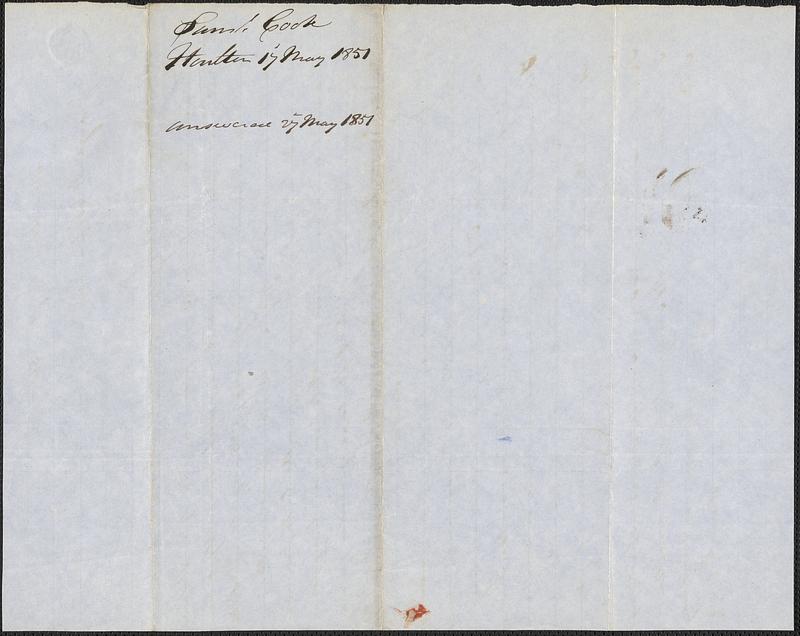 Saml. Cook
Houlton 17 May 1851
answered 27 May 1851